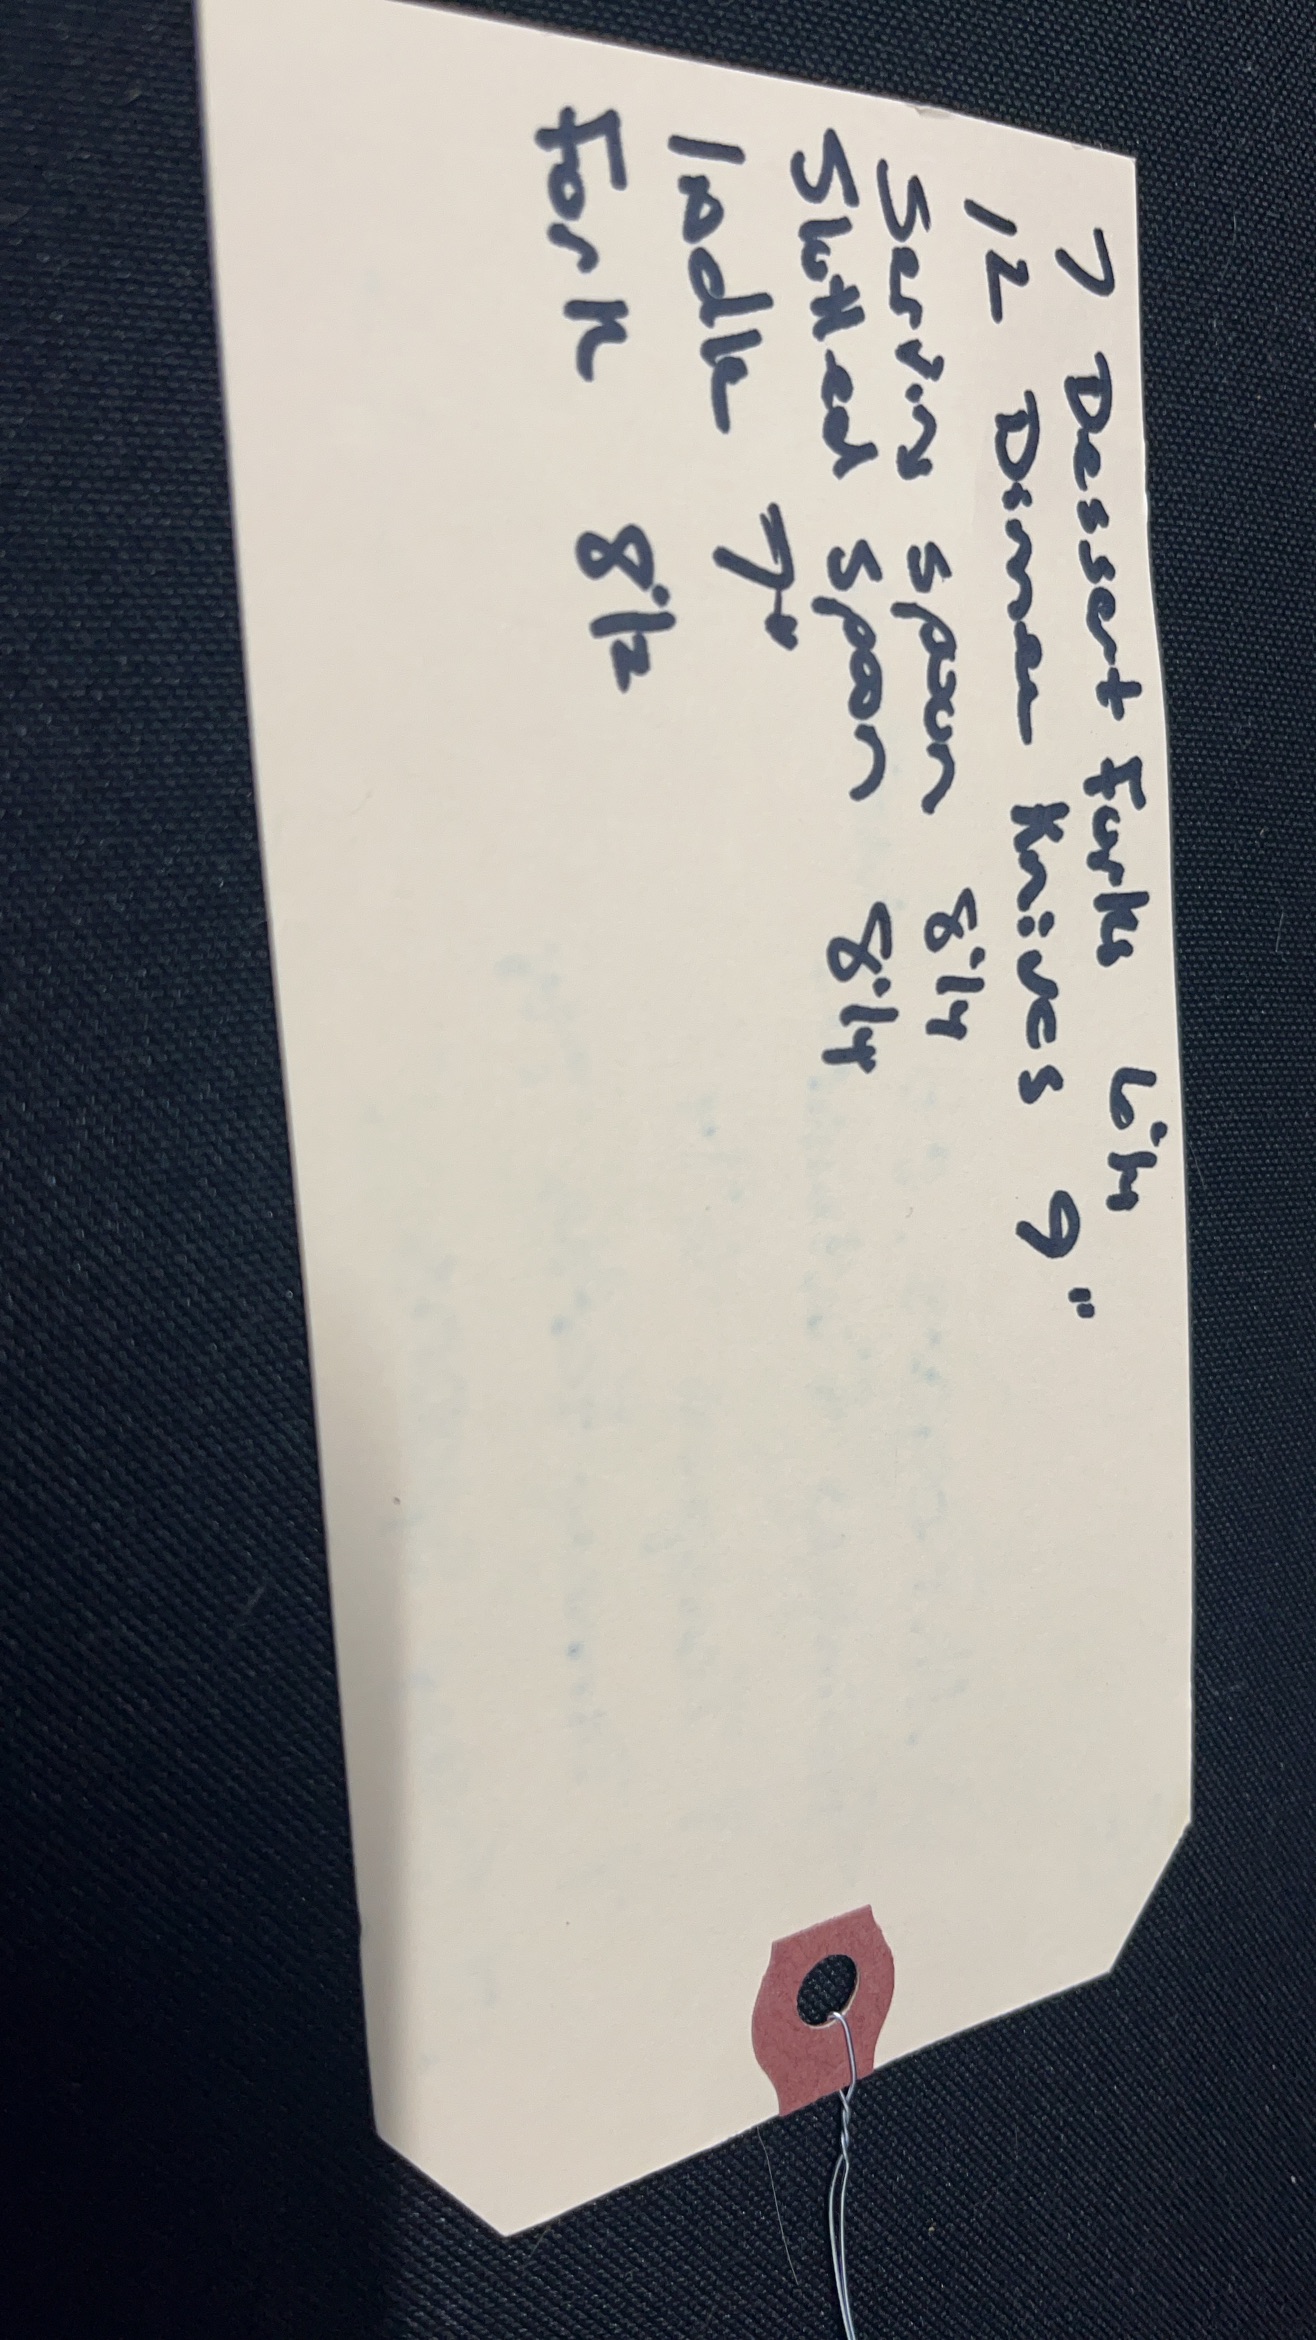 7 Dessert Forks 6 1/4
12 Dinner Knives 9"
Serving spoon 8 1/4
Slotted spoon 8 1/4
ladle 7"
Fork 8 1/2